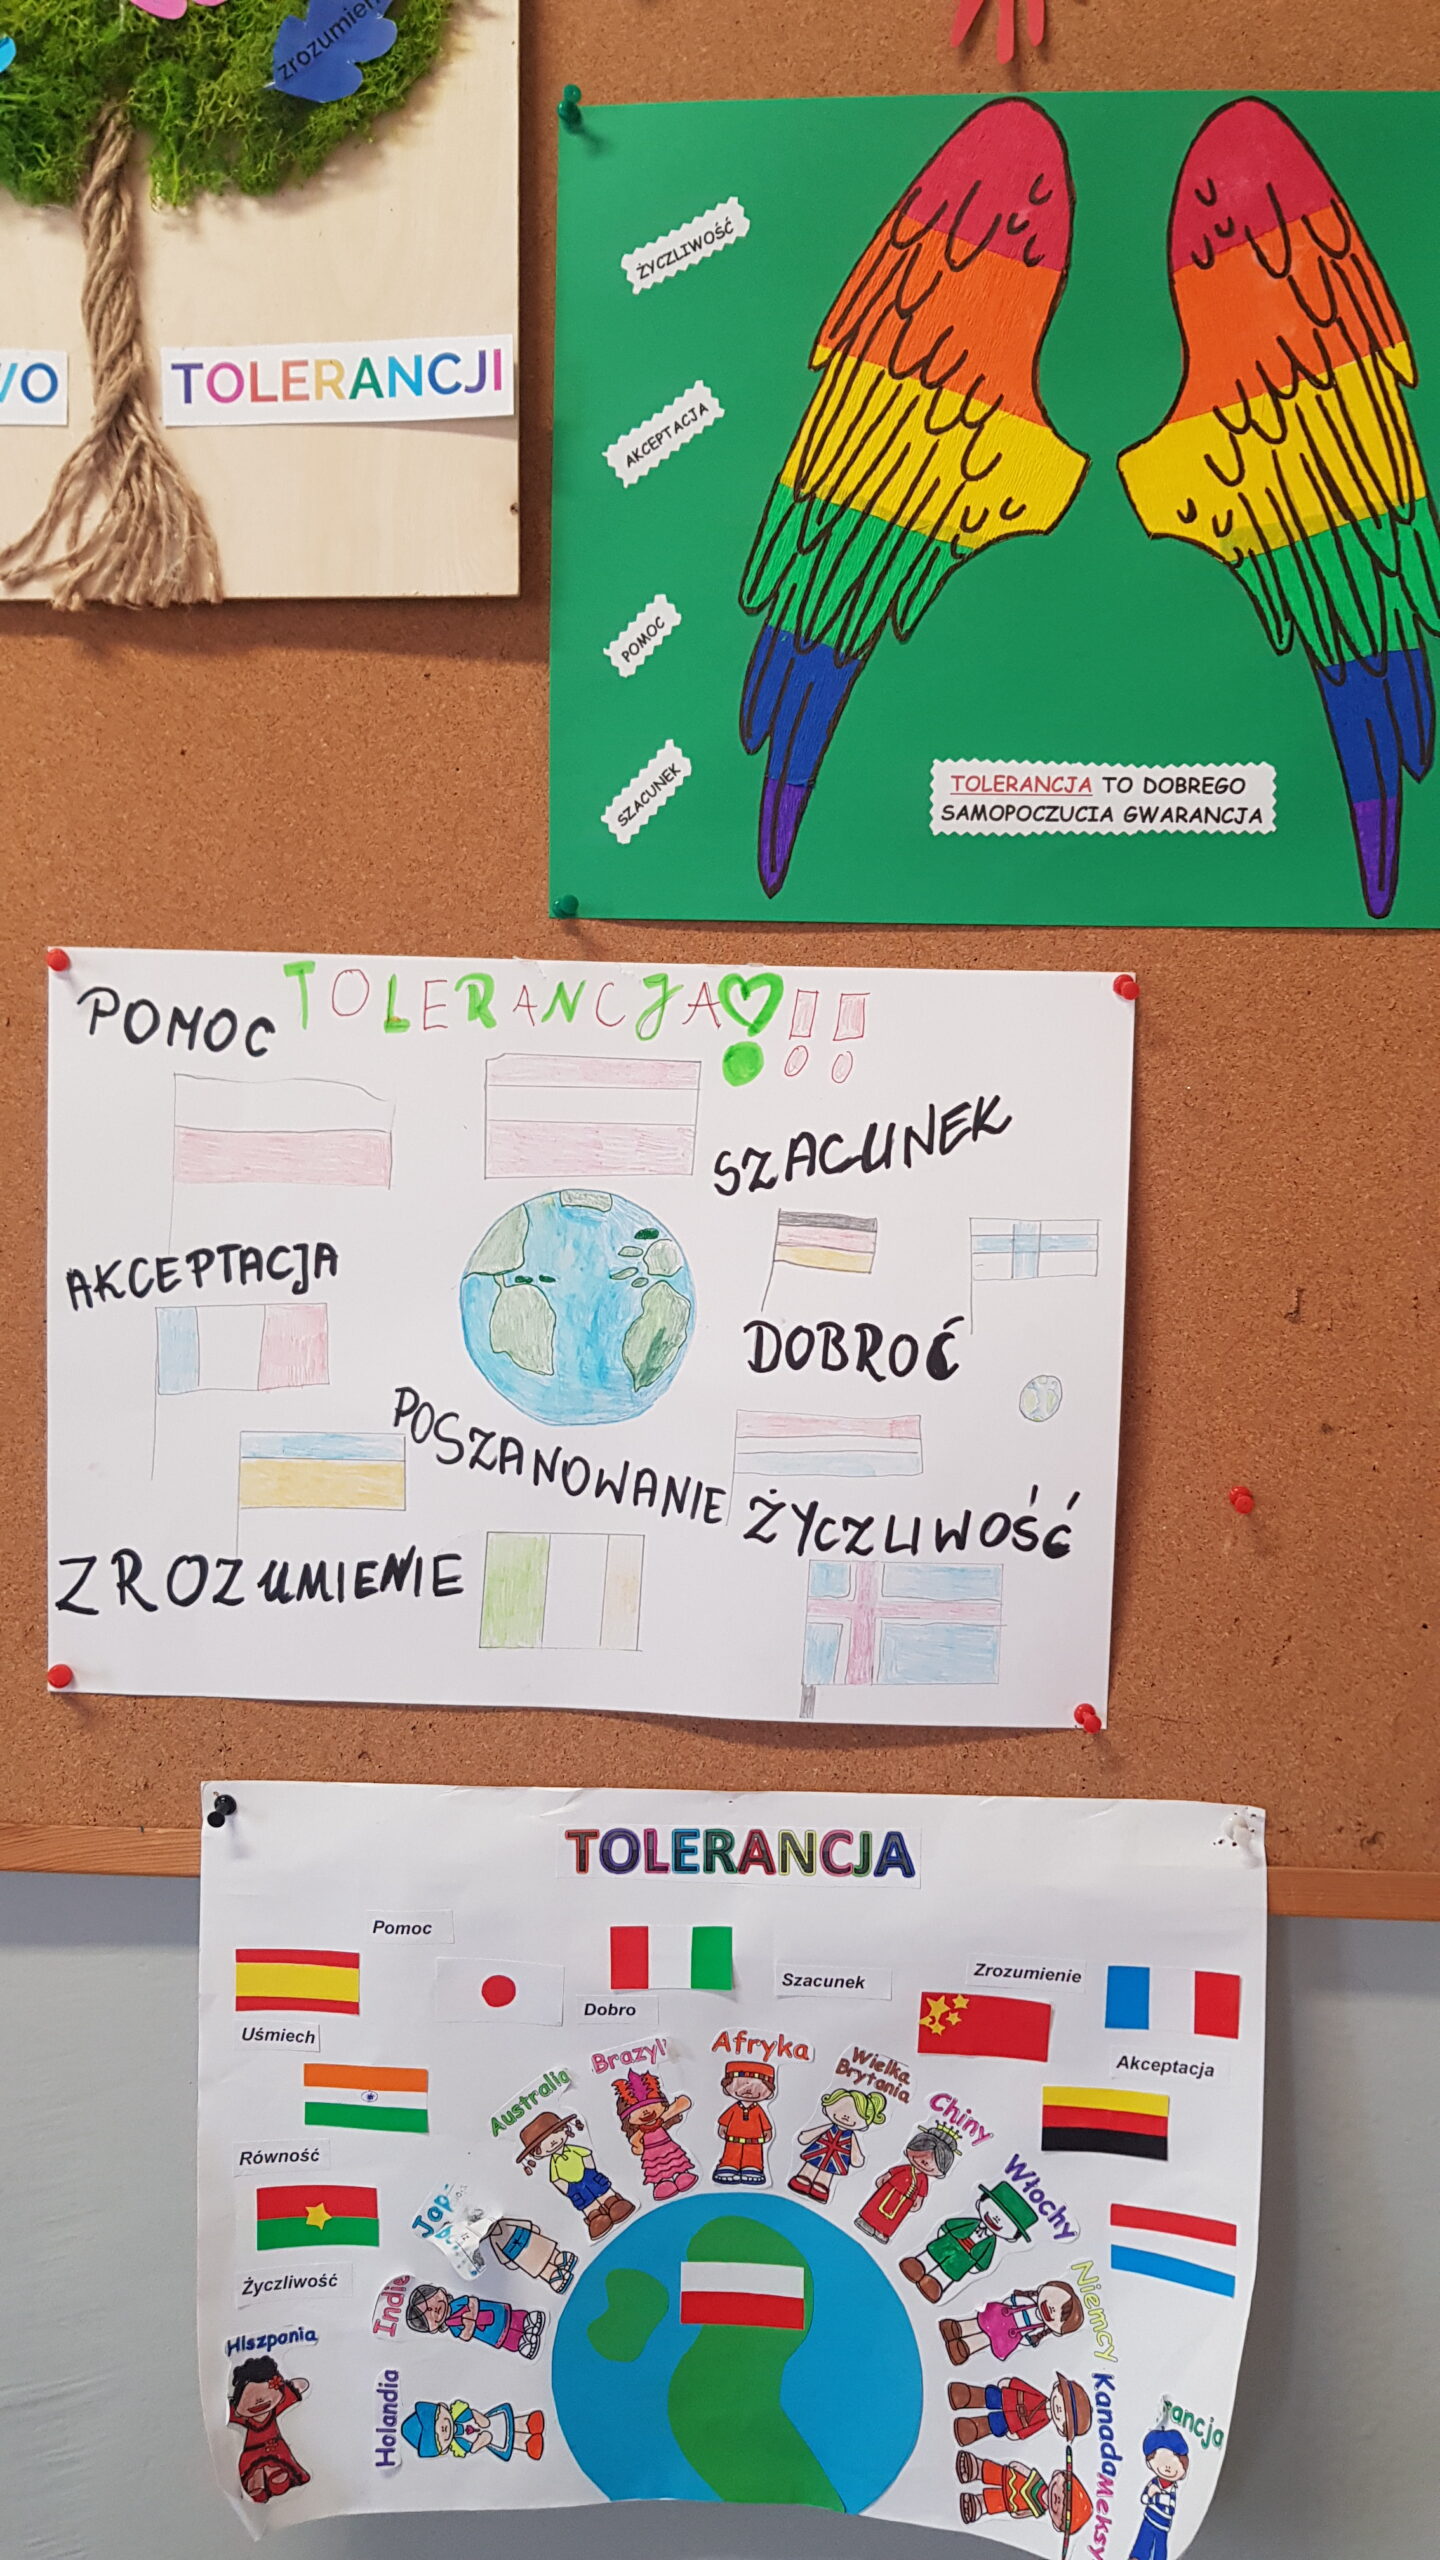 zrozumien
WO
TOLERANCJI
ŻYCZLIWOŚĆ
AKCEPTACJA
POMOC
SZACUNEK
TOLERANCJA TO DOBREGO
SAMOPOCZUCIA GWARANCJA
POMOC
TOLERANCJA!!!
SZACUNEK
AKCEPTACJA
DOBROĆ
POSZANOWANIE
ŻYCZLIWOŚĆ
ZROZUMIENIE
TOLERANCJA
Pomoc
Szacunek
Zrozumienie
Dobro
Uśmiech
Akceptacja
Równość
Życzliwość
Hiszpania
Holandia
Indie
Australia
Brazyli
Afryka
Wielka
Brytania
Chiny
Włochy
Niemcy
Kanada
Meksy
rancja